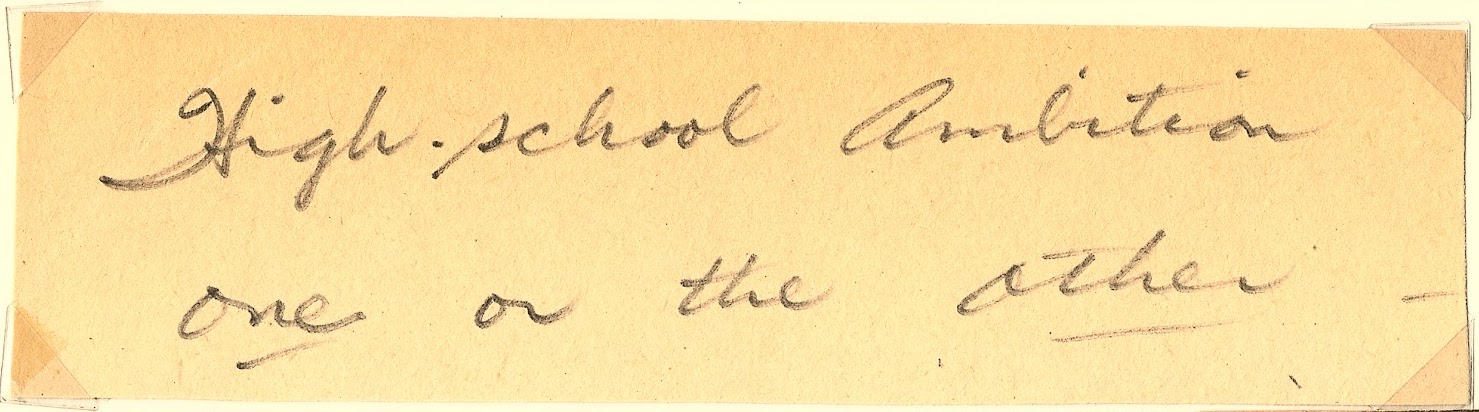 High-school Ambition
one or the other -